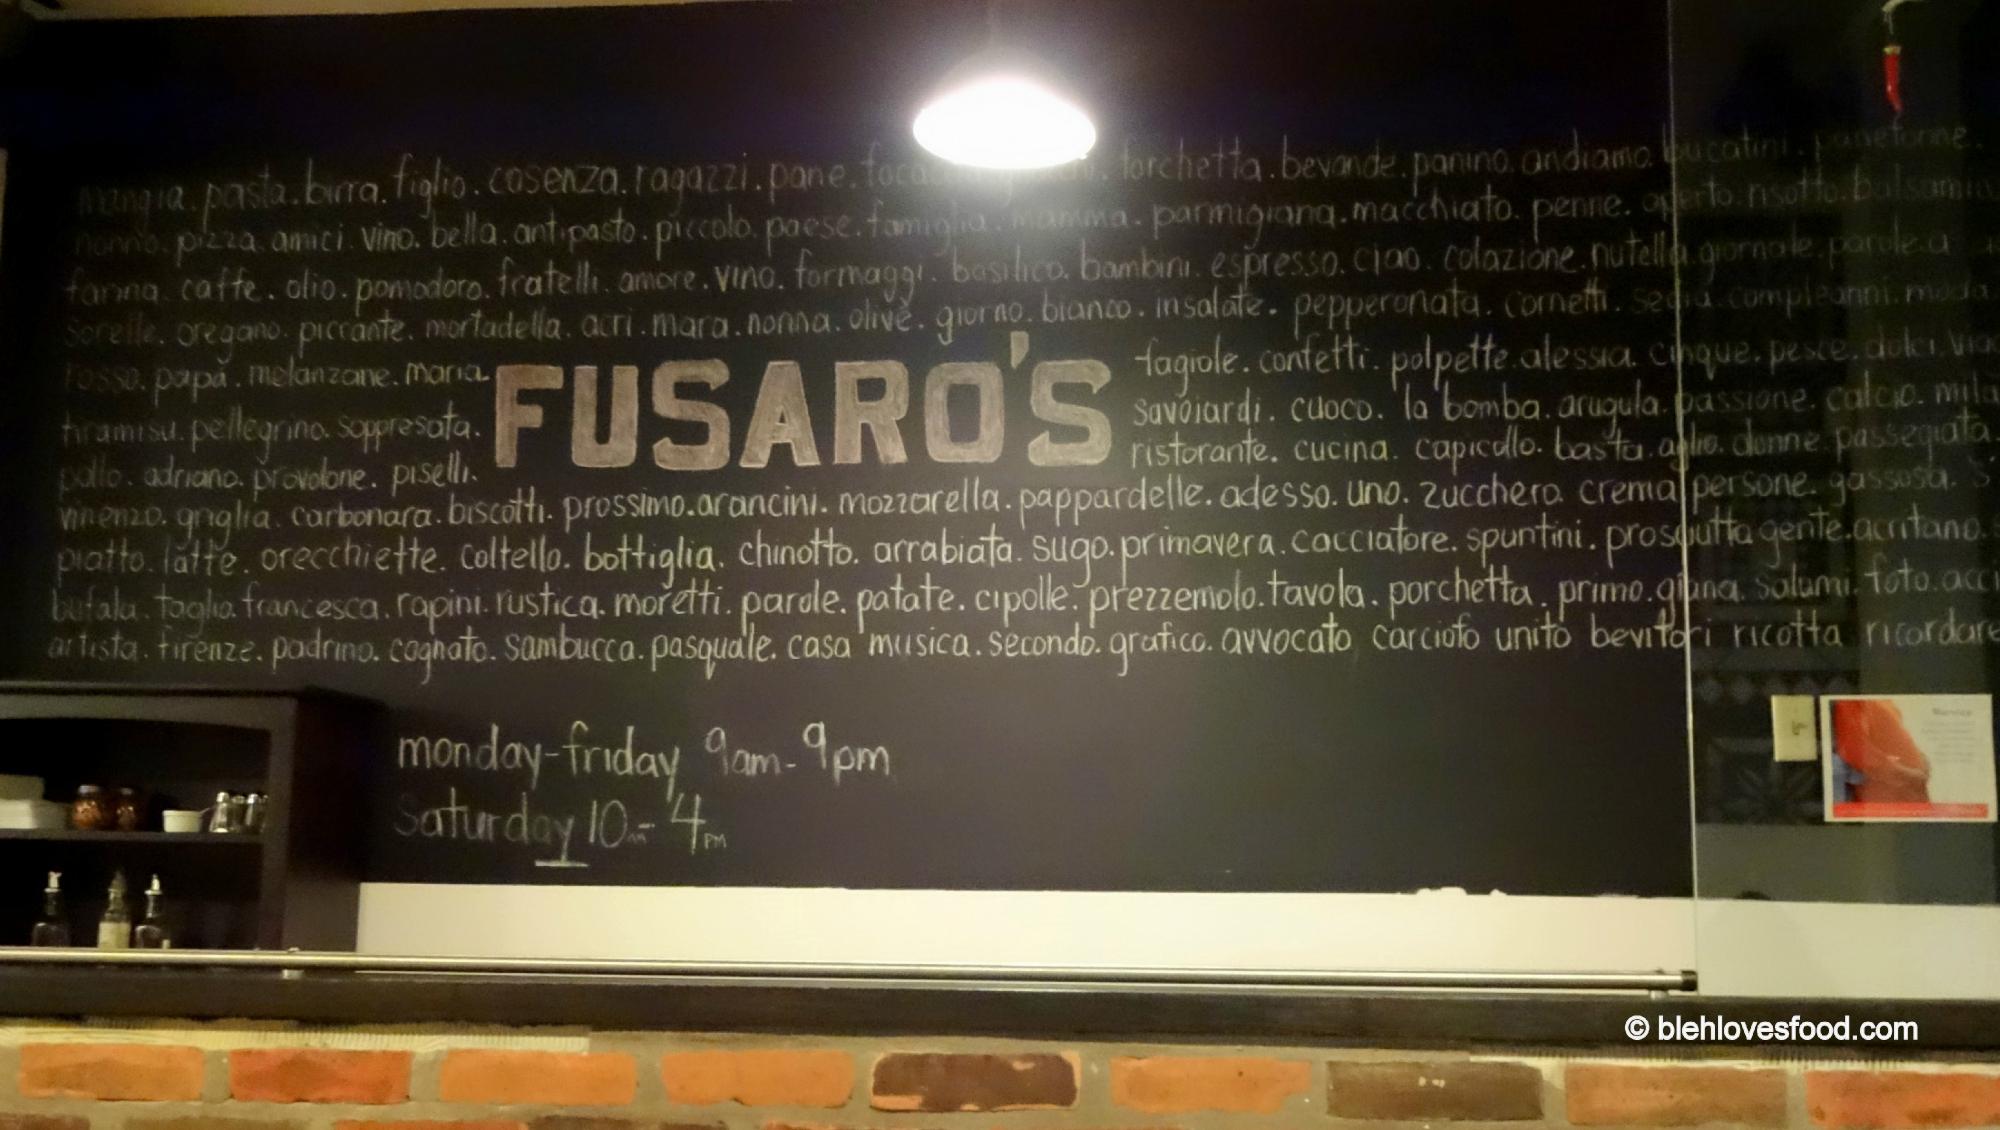 mangia. pasta. birra. figlio. cosenza. ragazzi. pane. forchetta. bevande. panino. andiamo. bucatini. panettonne.
nonno. pizza. amici. vino. bella. antipasto. piccolo. paese. famiglia. mamma. parmigiana. macchiato. penne. aperto. risotto. balsamic
farina. caffe. olio. pomodoro. fratelli. amore. vino. formaggi. basilico. bambini. espresso. ciao. colazione. nutella. giornale. parole. a
sorelle. oregano. piccante. mortadella. acri. mara. nonna. olive. giorno. bianco. insalate. pepperonata. cornetti. sedia. compleanni. moda.
rosso. papá. melanzane. maria.
tiramisu. pellegrino. soppresata.
pollo. adriano. provolone. piselli.
FUSARO'S
fagiole. confetti. polpette. alessia. cinque. pesce. dolci. viag
savoiardi. cuoco. la bomba. arugula. passione. calcio. mila
ristorante. cucina. capicollo. basta. aglio. donne. passegiata.
vincenzo. griglia. carbonara. biscotti. prossimo. arancini. mozzarella. pappardelle. adesso. uno. zucchero. crema persone. gassosa. S
piatto. latte. orecchiette. coltello. bottiglia. chinotto. arrabiata. sugo. primavera. cacciatore. spuntini. prosciutto gente. acritano. s
bufala. taglio. francesca. rapini. rustica. moretti. parole. patate. cipolle. prezzemolo. tavola. porchetta. primo. salumi. foto. acci
artista. firenze. padrino. cognato. sambucca. pasquale. casa musica. secondo. grafico. avvocato carciofo unito bevitori ricotta ricordare
monday-friday 9am-9pm
saturday 10am-4PM
© blehlovesfood.com